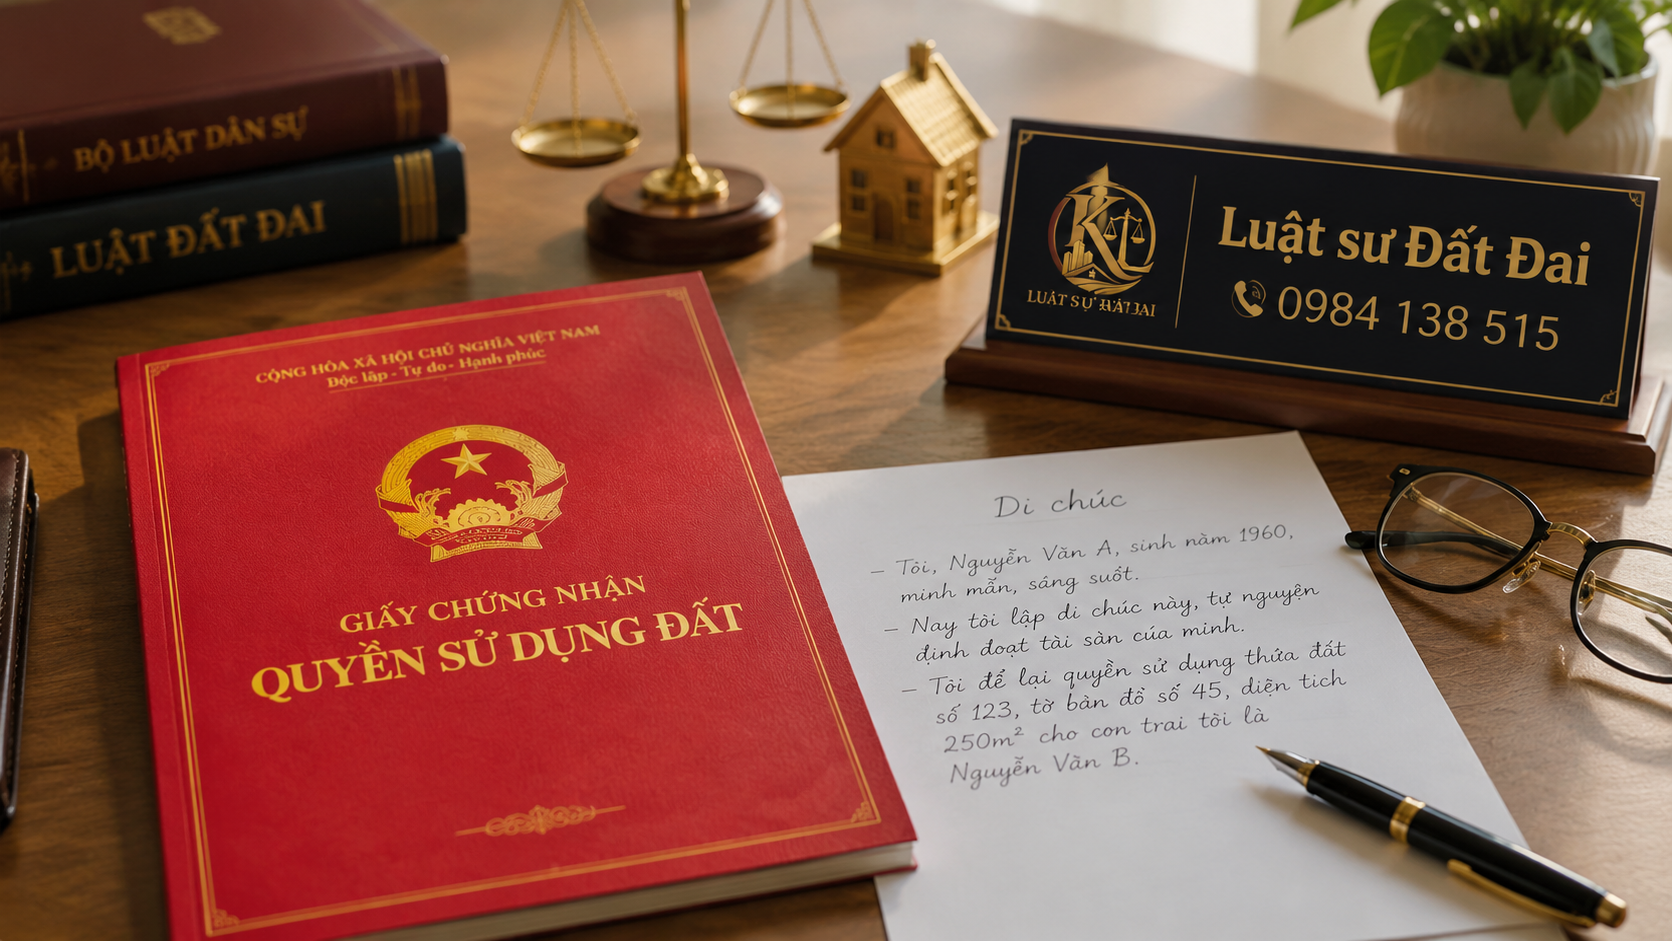 BỘ LUẬT DÂN SỰ
LUẬT ĐẤT ĐAI
CỘNG HÒA XÃ HỘI CHỦ NGHĨA VIỆT NAM
Độc lập - Tự do - Hạnh phúc
GIẤY CHỨNG NHẬN
QUYỀN SỬ DỤNG ĐẤT
KL
LUẬT SƯ
Luật sư Đất Đai
0984 138 515
Di chúc
– Tôi, Nguyễn Văn A, sinh năm 1960,
minh mẫn, sáng suốt.
– Nay tôi lập di chúc này, tự nguyện
định đoạt tài sản của mình.
– Tôi để lại quyền sử dụng thửa đất
số 123, tờ bản đồ số 45, diện tích
250m² cho con trai tôi là
Nguyễn Văn B.